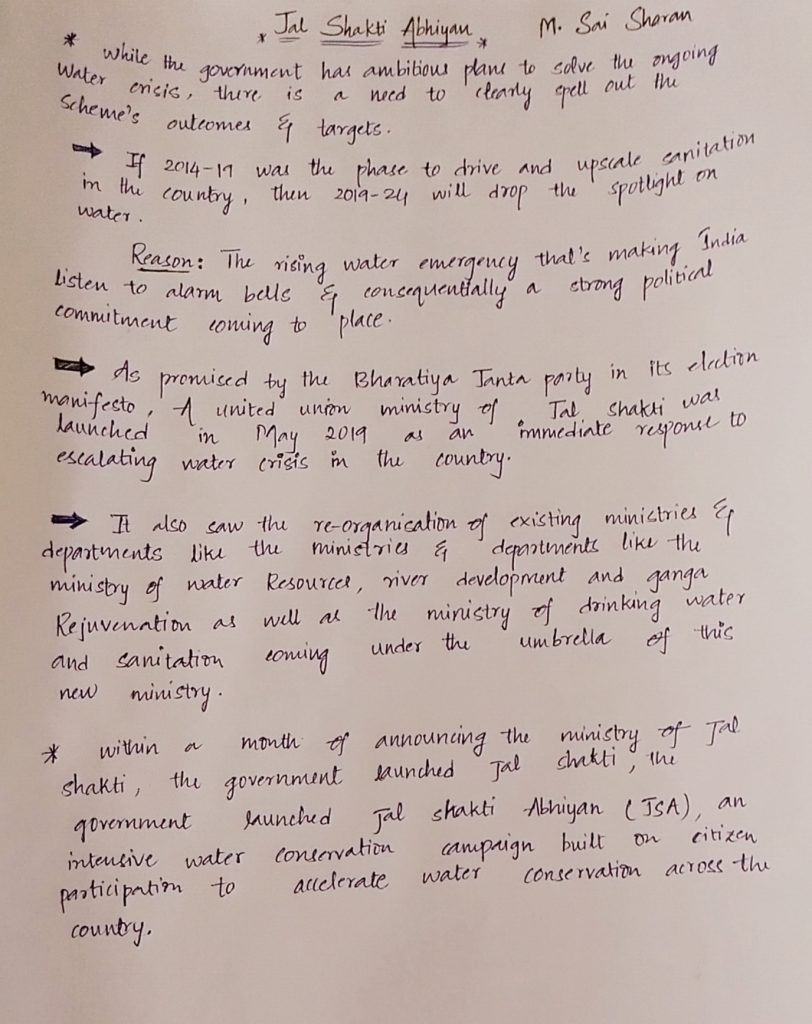 * Jal Shakti Abhiyan * M. Sai Sharan
* while the government has ambitious plans to solve the ongoing
water crisis, there is a need to clearly spell out the
scheme's outcomes & targets.
→ If 2014-19 was the phase to drive and upscale sanitation
in the country, then 2019-24 will drop the spotlight on
water.
Reason: The rising water emergency that's making India
listen to alarm bells & consequentially a strong political
commitment coming to place.
→ As promised by the Bharatiya Janta party in its election
manifesto, A united union ministry of Jal shakti was
launched in May 2019 as an immediate response to
escalating water crisis in the country.
→ It also saw the re-organisation of existing ministries &
departments like the ministries & departments like the
ministry of water Resources, river development and ganga
Rejuvenation as well as the ministry of drinking water
and sanitation coming under the umbrella of this
new ministry.
* within a month of announcing the ministry of Jal
shakti, the government launched Jal shakti, the
government launched Jal shakti Abhiyan (JSA), an
intensive water conservation campaign built on citizen
participation to accelerate water conservation across the
country.